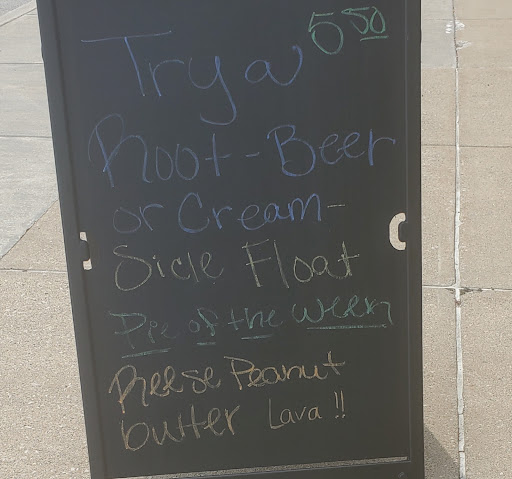 Try a 5 50
Root-Beer
or Cream-
Sicle Float
Pie of the Week
Reese Peanut
butter Lava !!